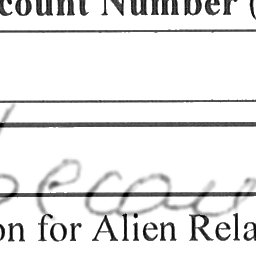 count Number (
on for Alien Rela